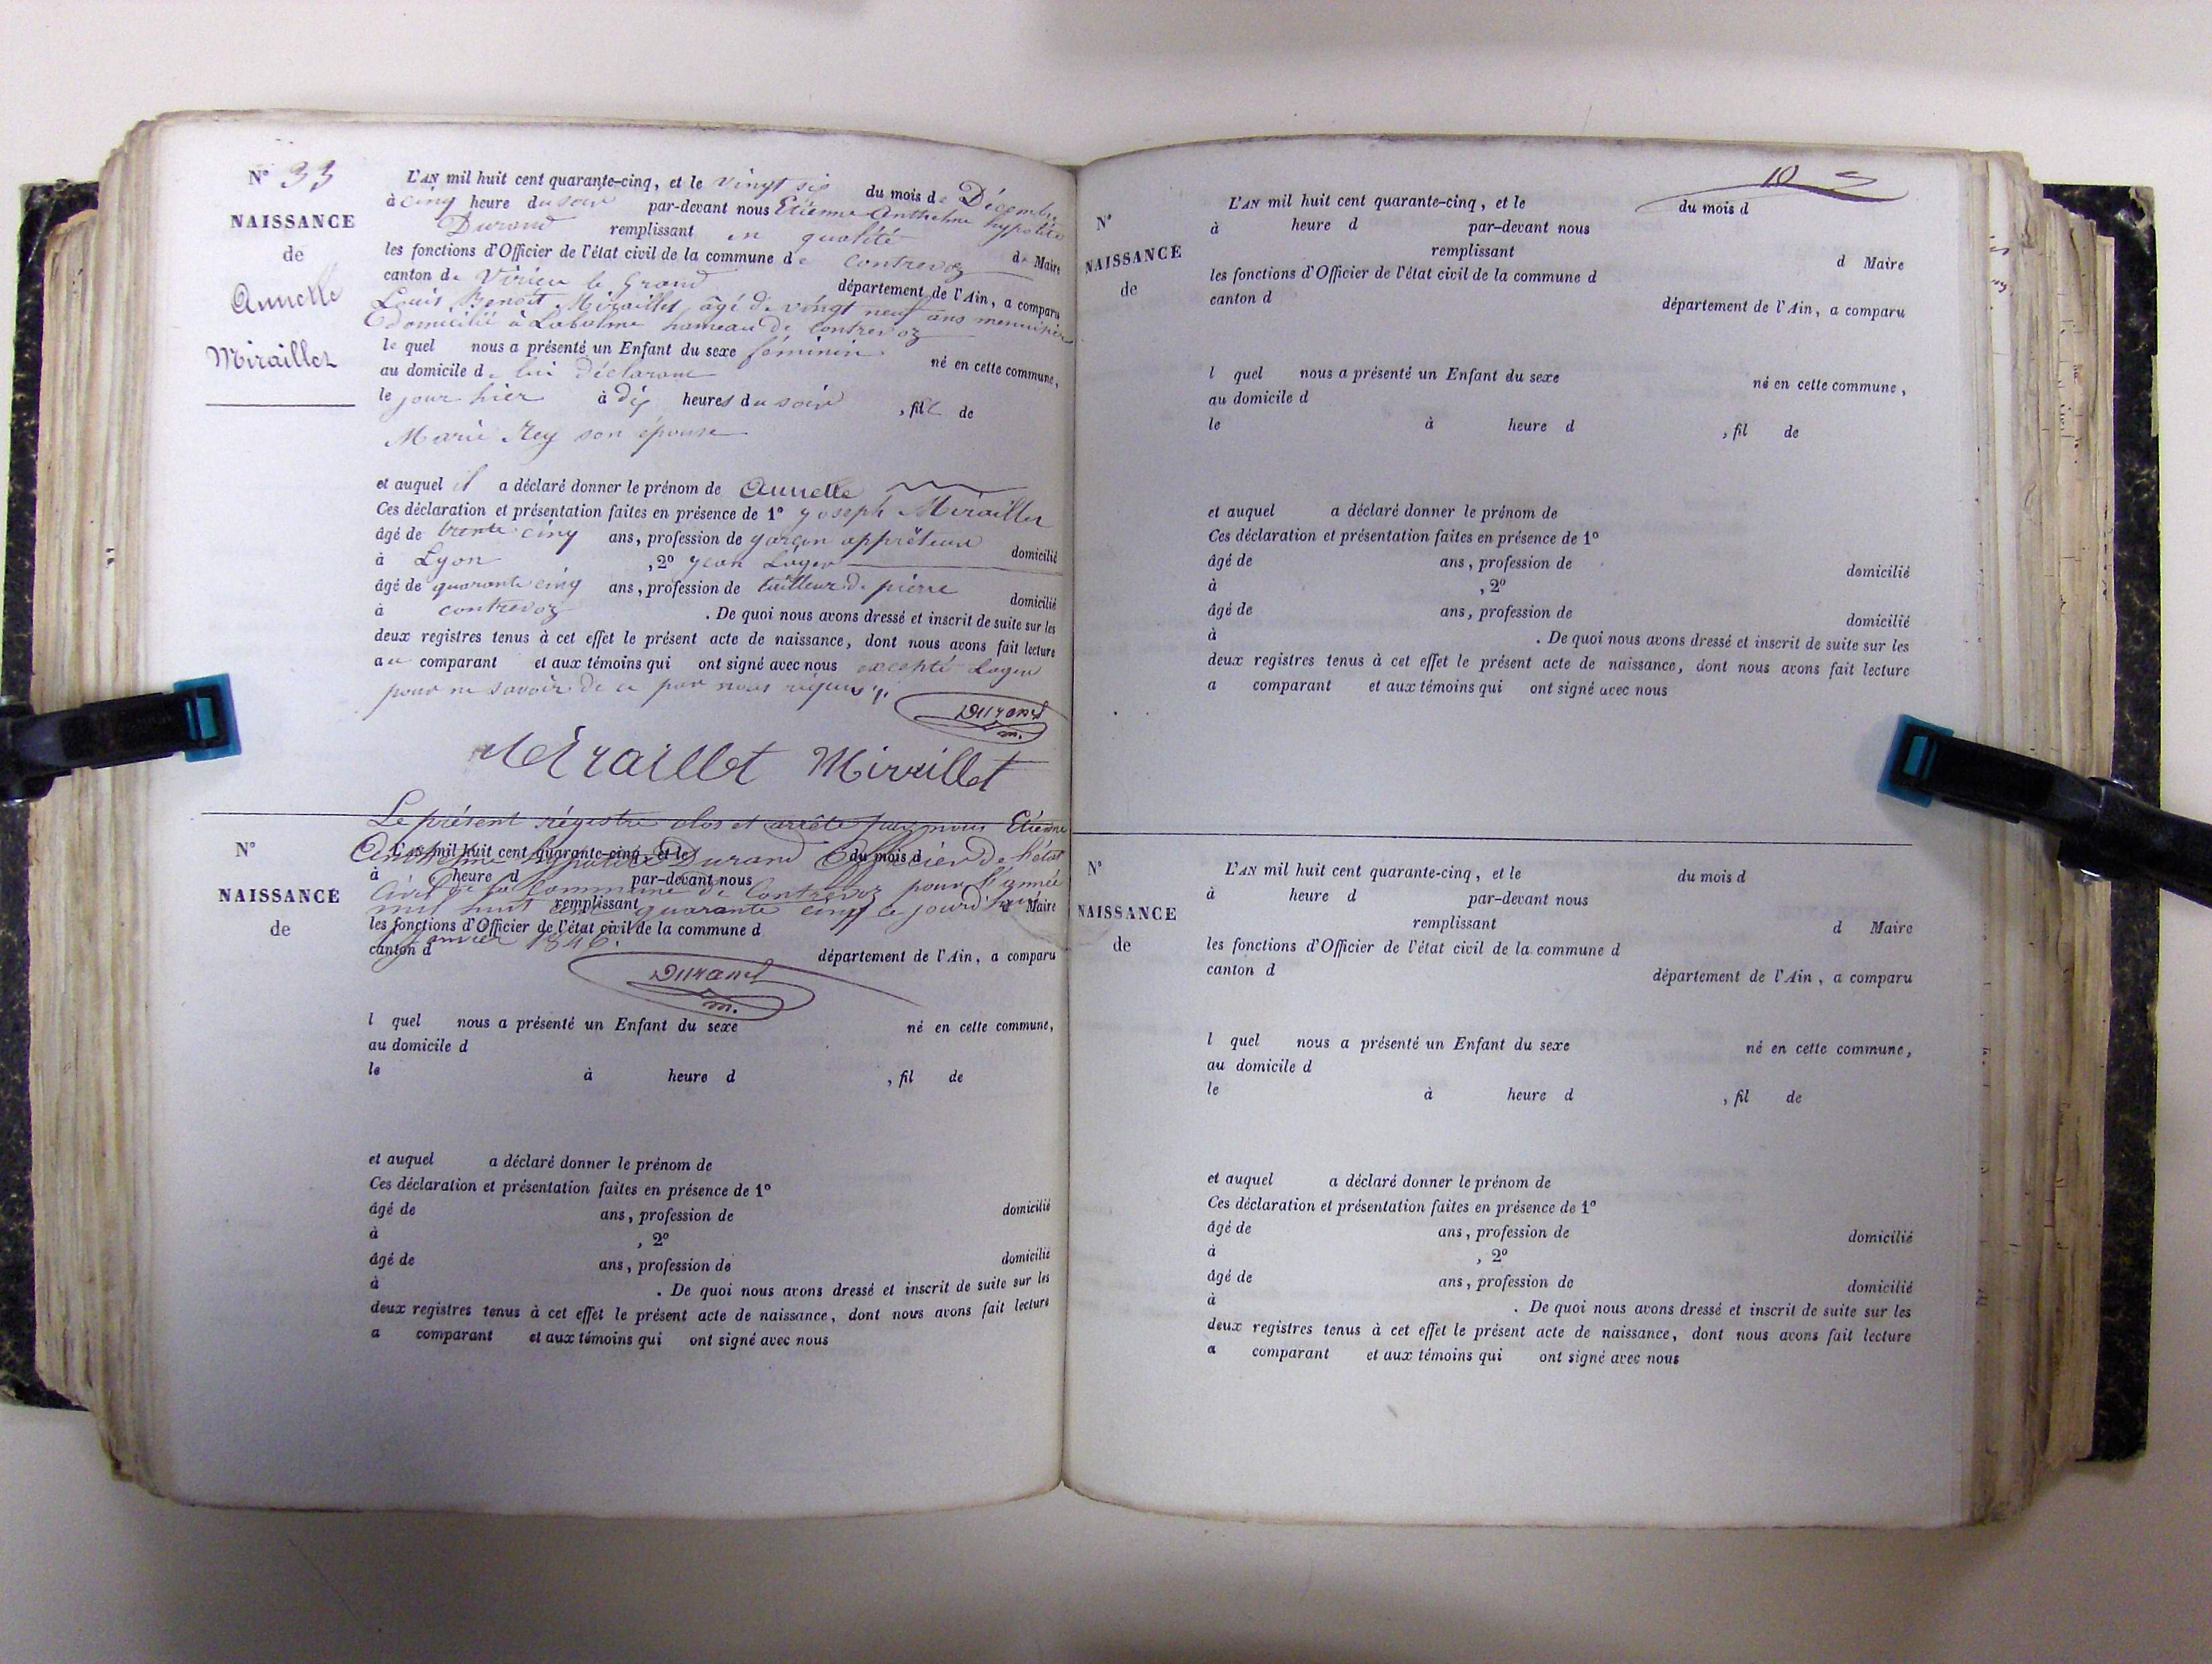 N° 33
NAISSANCE
de
Annette
Miraillet
L'AN mil huit cent quarante-cinq, et le vingt six du mois de Décembre
à cinq heure du soir par-devant nous Etienne Anthelme hypolite
Durand remplissant en qualité de Maire
les fonctions d'Officier de l'état civil de la commune de contrevoz
canton de Virieu le Grand département de l'Ain, a comparu
Louis Benoit Miraillet âgé de vingt neuf ans menuisier
domicilié à Labalme hameau de contrevoz
le quel nous a présenté un Enfant du sexe féminin né en cette commune,
au domicile de lui déclarant
le jour hier à dix heures du soir, fille de
Marie Rey son épouse
et auquel il a déclaré donner le prénom de Annette
Ces déclaration et présentation faites en présence de 1° Joseph Miraillet
âgé de trente cinq ans, profession de garçon apprêteur domicilié
à Lyon, 2° Jean Luger
âgé de quarante cinq ans, profession de tailleur de pierre domicilié
à contrevoz. De quoi nous avons dressé et inscrit de suite sur les
deux registres tenus à cet effet le présent acte de naissance, dont nous avons fait lecture
au comparant et aux témoins qui ont signé avec nous excepté Luger
pour ne savoir de ce par nous requis
Durand
m.
Miraillet Miraillet
Le présent régistre clos et arrêté par nous Etienne
Anthelme hypolite Durand Officier de l'état
Civil de la Commune de Contrevoz pour l'année
mil huit cent quarante cinq ce jourd'hui
janvier 1846.
Durand
m.
N°
NAISSANCE
de
L'AN mil huit cent quarante-cinq, et le du mois d
à heure d par-devant nous
remplissant d Maire
les fonctions d'Officier de l'état civil de la commune d
canton d département de l'Ain, a comparu
l quel nous a présenté un Enfant du sexe né en cette commune,
au domicile d
le à heure d , fil de
et auquel a déclaré donner le prénom de
Ces déclaration et présentation faites en présence de 1°
âgé de ans, profession de domicilié
à , 2°
âgé de ans, profession de domicilié
à . De quoi nous avons dressé et inscrit de suite sur les
deux registres tenus à cet effet le présent acte de naissance, dont nous avons fait lecture
a comparant et aux témoins qui ont signé avec nous
10
N°
NAISSANCE
de
L'AN mil huit cent quarante-cinq, et le du mois d
à heure d par-devant nous
remplissant d Maire
les fonctions d'Officier de l'état civil de la commune d
canton d département de l'Ain, a comparu
l quel nous a présenté un Enfant du sexe né en cette commune,
au domicile d
le à heure d , fil de
et auquel a déclaré donner le prénom de
Ces déclaration et présentation faites en présence de 1°
âgé de ans, profession de domicilié
à , 2°
âgé de ans, profession de domicilié
à . De quoi nous avons dressé et inscrit de suite sur les
deux registres tenus à cet effet le présent acte de naissance, dont nous avons fait lecture
a comparant et aux témoins qui ont signé avec nous
N°
NAISSANCE
de
L'AN mil huit cent quarante-cinq, et le du mois d
à heure d par-devant nous
remplissant d Maire
les fonctions d'Officier de l'état civil de la commune d
canton d département de l'Ain, a comparu
l quel nous a présenté un Enfant du sexe né en cette commune,
au domicile d
le à heure d , fil de
et auquel a déclaré donner le prénom de
Ces déclaration et présentation faites en présence de 1°
âgé de ans, profession de domicilié
à , 2°
âgé de ans, profession de domicilié
à . De quoi nous avons dressé et inscrit de suite sur les
deux registres tenus à cet effet le présent acte de naissance, dont nous avons fait lecture
a comparant et aux témoins qui ont signé avec nous